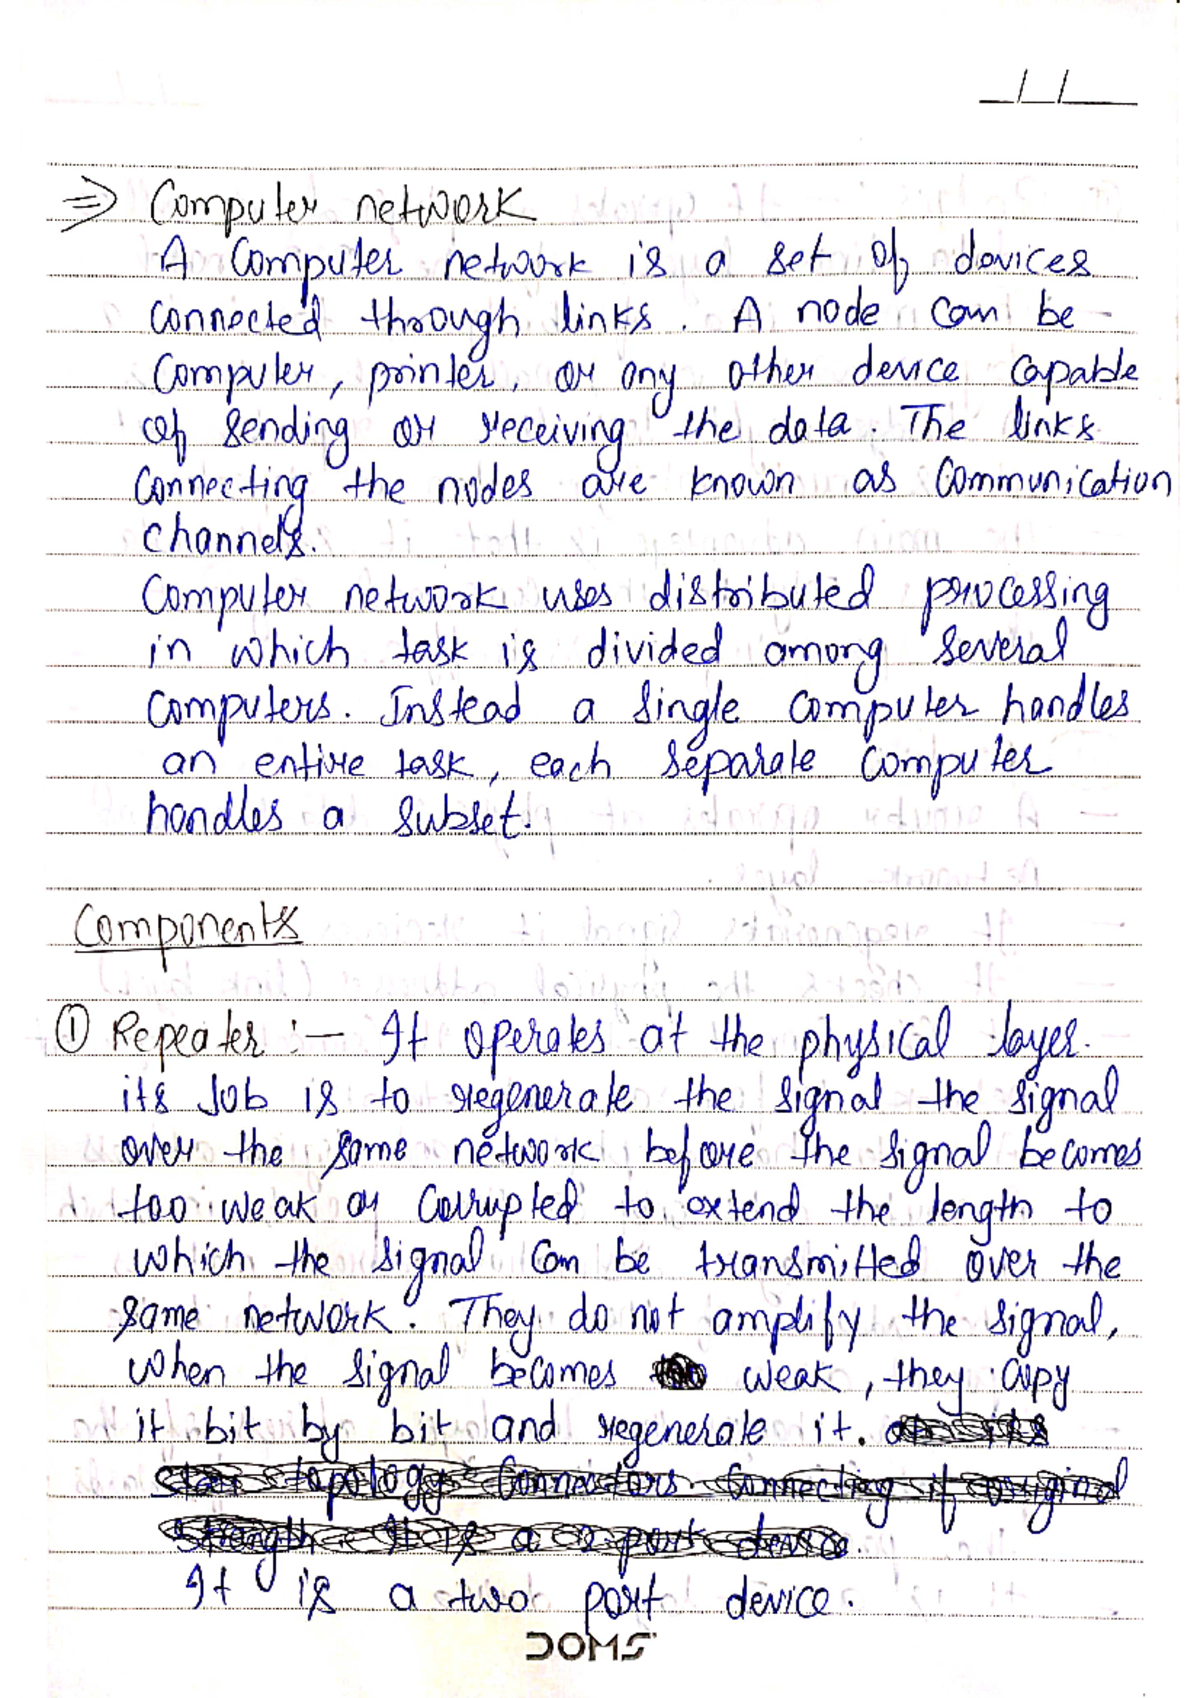 __/__/____
⇒ Computer network
A Computer network is a set of devices
connected through links. A node can be
Computer, printer, or any other device capable
of sending or receiving the data. The links
connecting the nodes are known as Communication
channels.
Computer network uses distributed processing
in which task is divided among several
computers. Instead a single computer handles
an entire task, each separate computer
handles a subset.
Components
① Repeater :- It operates at the physical layer.
its Job is to regenerate the signal the signal
over the same network before the signal becomes
too weak or corrupted to extend the length to
which the signal can be transmitted over the
same network. They do not amplify the signal,
when the signal becomes weak, they copy
it bit by bit and regenerate it.
topology connectors connecting if original
strength. It is a 2 port device.
It is a two port device.
DOMS